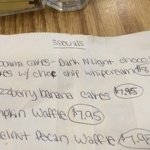 Specials
cakes - Dark N Light choco
w/ choc chip whipcream
zzberry banana cakes $7.95
pkin Waffle $7.95
elnut Pecan Waffle $7.95